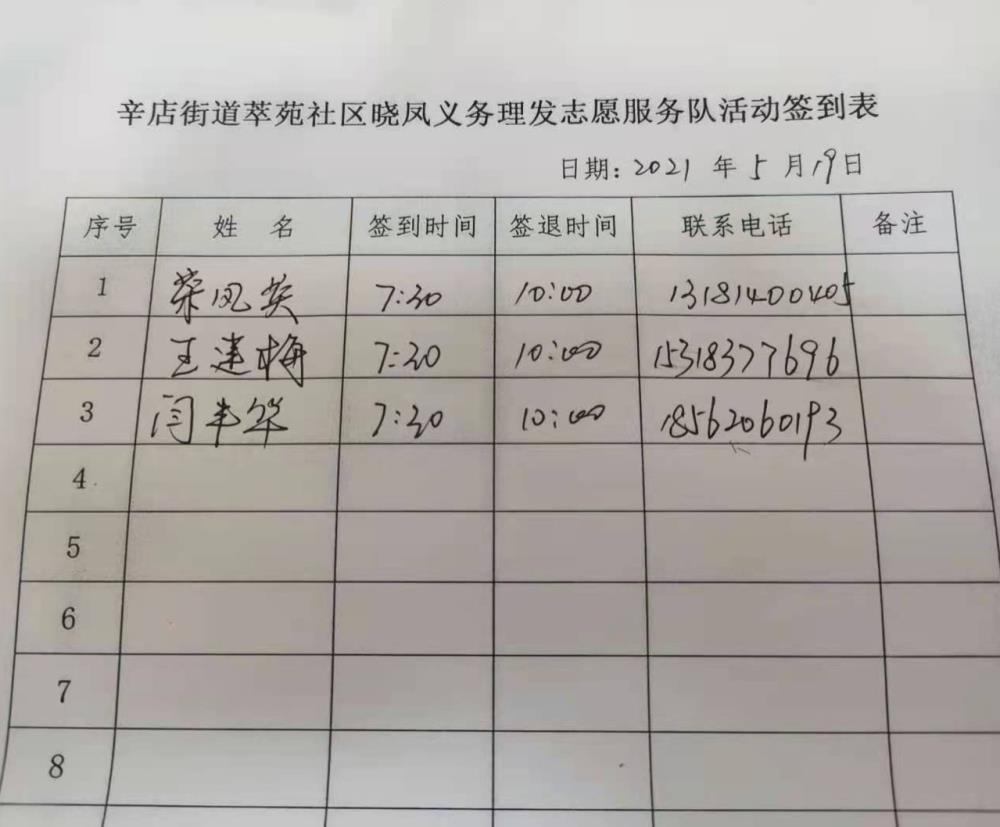 辛店街道萃苑社区晓凤义务理发志愿服务队活动签到表
日期: 2021 年 5 月 19 日
序号 姓 名 签到时间 签退时间 联系电话 备注
1 荣凤英 7:30 10:00 13181400405
2 王建梅 7:30 10:00 15318377696
3 闫丰华 7:30 10:00 18562060193
4
5
6
7
8